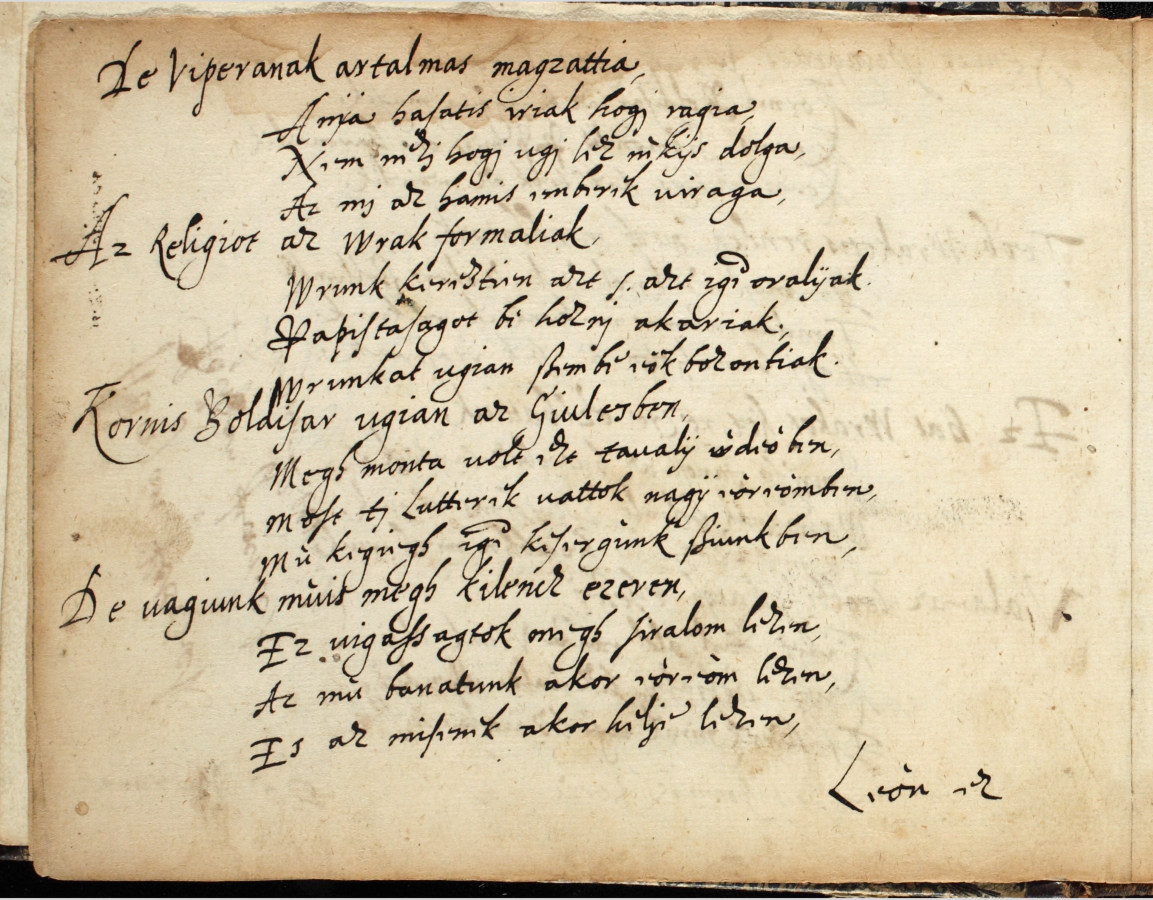 De Viperanak artalmas magzattia,
Anÿa hasatis iriak hogj ragia,
Niem nezj hogj ugj lez nekÿs dolga,
Az mj az hamis emberek viraga,
Az Religiot az Wrak formaliak,
Wrunk kereztien azt s. azt igi oralÿak.
Papistasagot be hoznj akariak,
Wrunkat ugian ßembe iòk bozontiak.
Kornis Boldisar ugian az Giulesben,
Megh monta volt ezt tavalÿ ùdeòben,
Most tj Lutterek vattok nagÿ eòreòmben,
Mù kegiegh igi kesergùnk ßiunkben,
De vagiunk mùis megh kilencz ezeren,
Ez vigassagtok megh siralom lezen,
Az mù banatunk akor eòreòm lezen,
Es az misenek akor helÿe lezen,
Leòn ez